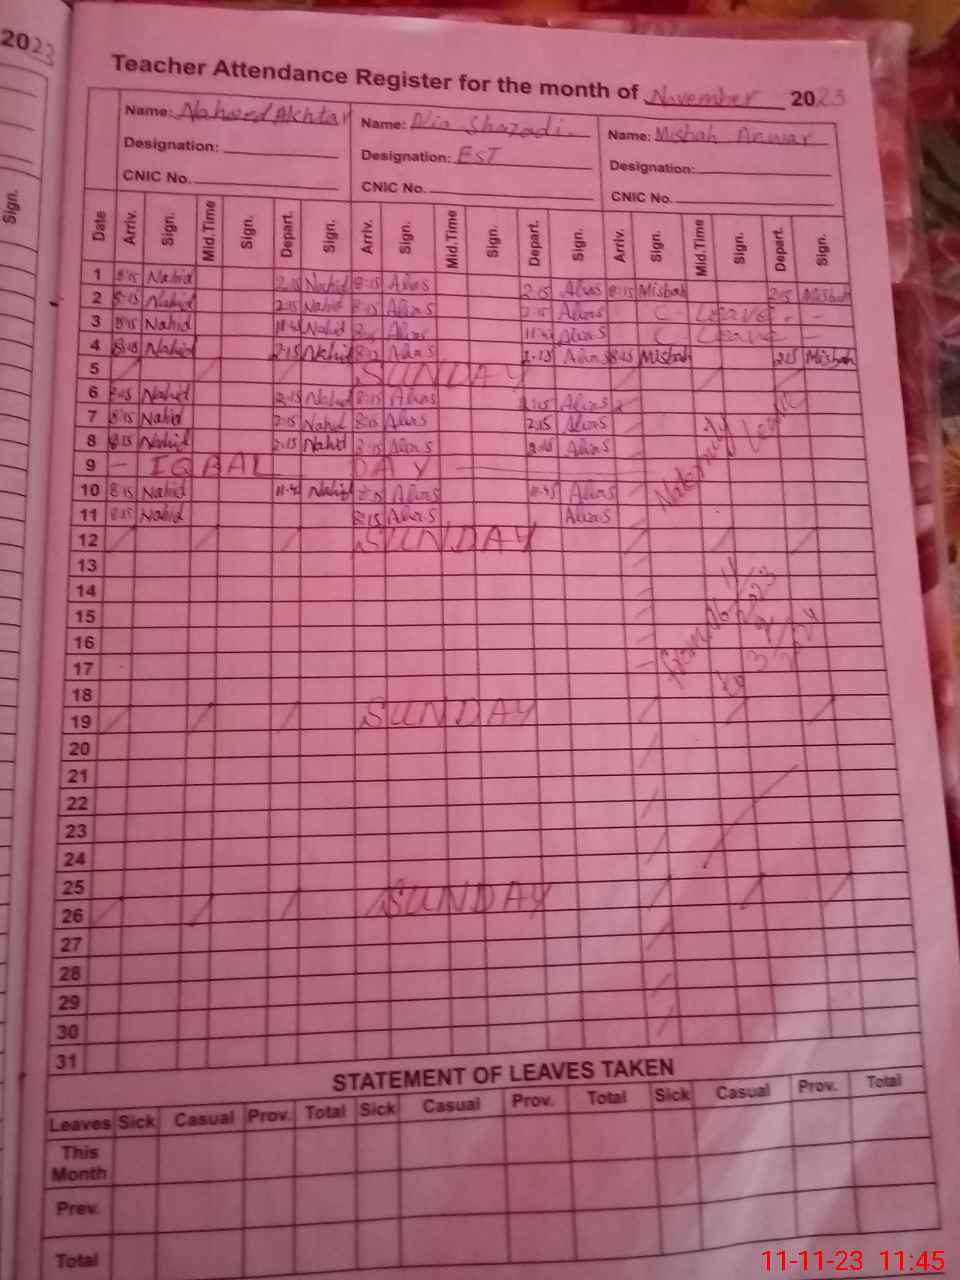 2023
Sign.
Teacher Attendance Register for the month of November 2023
Name: Naheed Akhtar Name: Alia Shazadi. Name: Misbah Anwar
Designation: Designation: EST Designation:
CNIC No. CNIC No. CNIC No.
Date Arriv. Sign. Mid.Time Sign. Depart. Sign. Arriv. Sign. Mid.Time Sign. Depart. Sign. Arriv. Sign. Mid.Time Sign. Depart. Sign.
1 8:15 Nahid 2:15 Nahid 8:15 Alias 2:15 Alias 8:15 Misbah 2:15 Misbah
2 8:15 Nahid 2:15 Nahid 8:15 Alias 2:15 Alias C- Leave - -
3 8:15 Nahid 11:45 Nahid Alias 11:45 Alias C Leave -
4 8:15 Nahid 2:15 Nahid Alias 2:15 Alias 8:15 Misbah 2:15 Misbah
5 SUNDAY
6 8:15 Nahid 2:15 Nahid 8:15 Alias 2:15 Alias
7 8:15 Nahid 2:15 Nahid 8:15 Alias 2:15 Alias
8 8:15 Nahid 2:15 Nahid 8:15 Alias 2:15 Alias
9 - IQBAL DAY
10 8:15 Nahid Nahid Alias 11:45 Alias
11 8:15 Nahid 8:15 Alias Alias
12 SUNDAY
Leave
13
14
15
16
17
18
19 SUNDAY
20
21
22
23
24
25
26 SUNDAY
27
28
29
30
31
STATEMENT OF LEAVES TAKEN
Leaves Sick Casual Prov. Total Sick Casual Prov. Total Sick Casual Prov. Total
This
Month
Prev.
Total
11-11-23 11:45